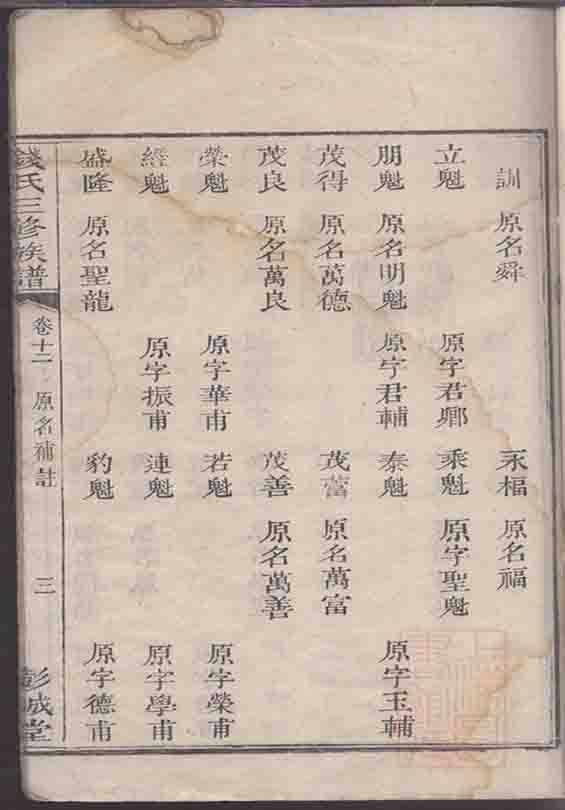 訓 原名舜 永楅 原名福
立魁 原字君卿 乘魁 原字聖魁
朋魁 原名明魁 原字君輔 泰魁 原字玉輔
茂得 原名萬德 茂 原名萬富
茂良 原名萬良 茂善 原名萬善
榮魁 原字華甫 若魁 原字榮甫
經魁 原字振甫 連魁 原字學甫
盛隆 原名聖龍 豹魁 原字德甫
錢氏三修族譜 卷十二 原名補註 三 彭城堂